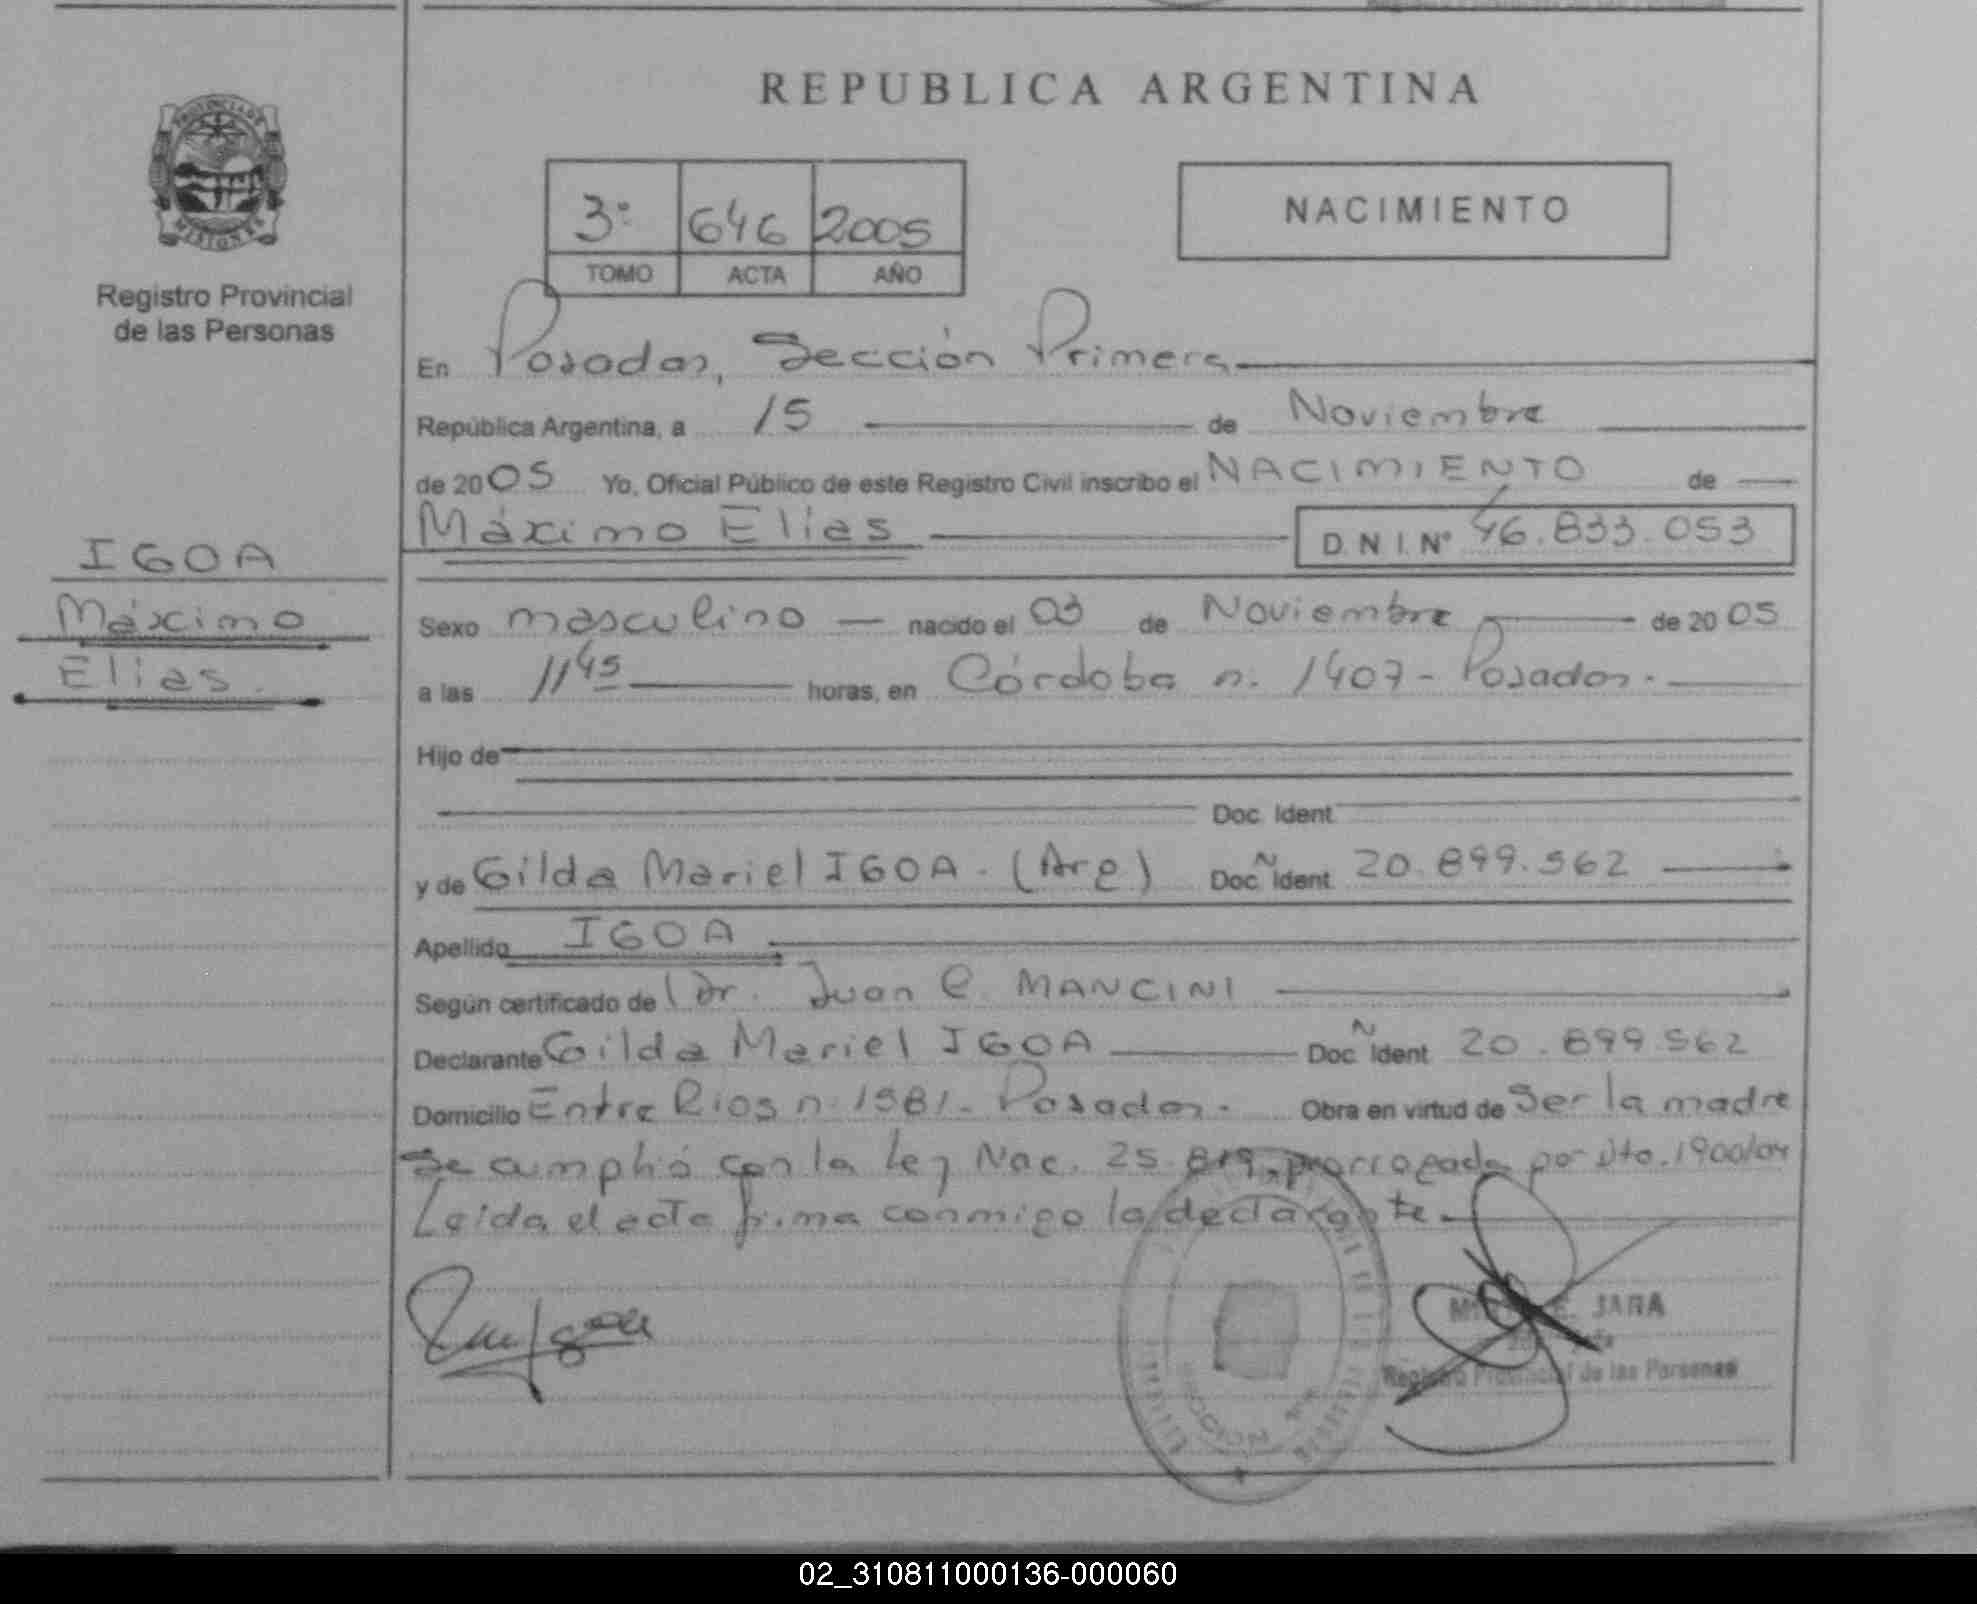 REPUBLICA ARGENTINA
PROVINCIA DE
MISIONES
Registro Provincial
de las Personas
3º 646 2005
TOMO ACTA AÑO
NACIMIENTO
En Posadas, Sección Primera
República Argentina, a 15 de Noviembre
de 2005 Yo, Oficial Público de este Registro Civil inscribo el NACIMIENTO de
Máximo Elías D.N.I.Nº 46.833.053
IGOA
Máximo
Elías.
Sexo masculino nacido el 03 de Noviembre de 2005
a las 11 45 horas, en Córdoba n. 1407 - Posadas.
Hijo de
Doc. Ident
y de Gilda Mariel IGOA. (Arg) Doc. Ñ Ident 20.899.562
Apellido IGOA
Según certificado de Dr. Juan C. MANCINI
Declarante Gilda Mariel IGOA Doc. Ñ Ident 20.899.562
Domicilio Entre Rios n. 1581 - Posadas. Obra en virtud de Ser la madre
Se cumplió con la Ley Nac. 25.819, prorrogada por Dto. 1900/04
Leída el acta firma conmigo la declarante.
JARA
Registro Provincial de las Personas
02_310811000136-000060